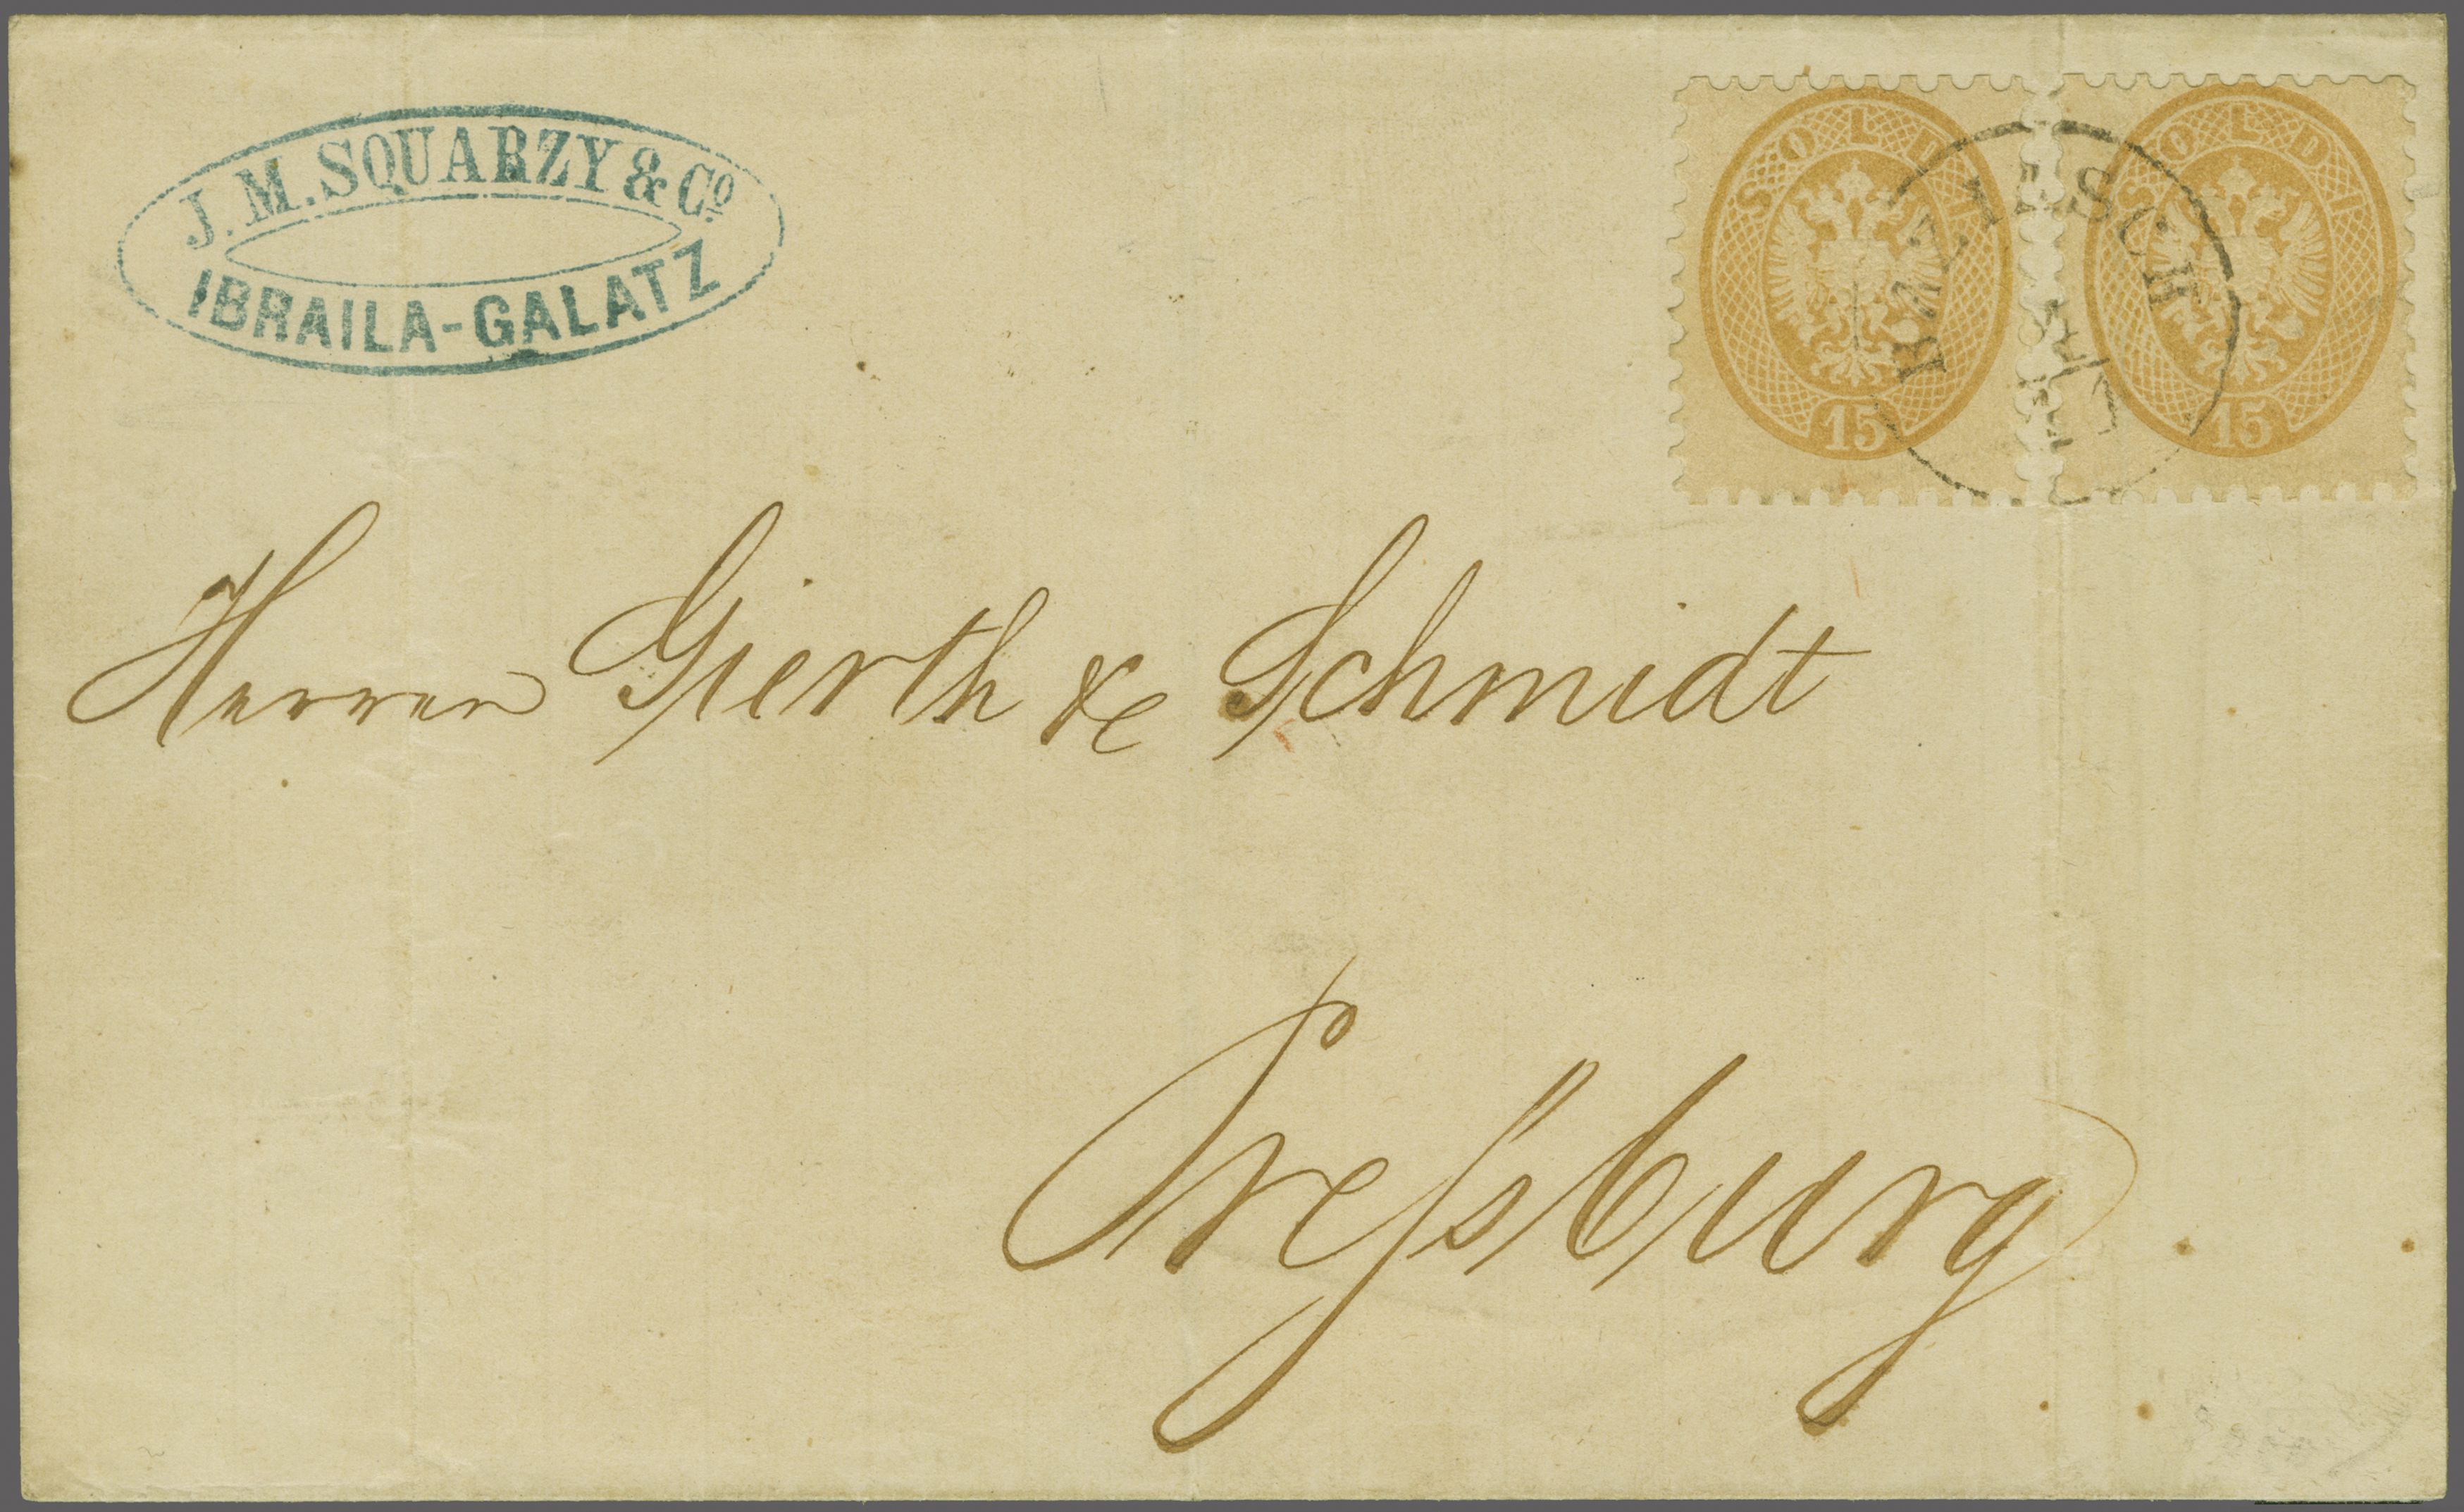 J. M. SQUARZY & Co
IBRAILA-GALATZ
SOLDI
15
SOLDI
15
Herren Gierth & Schmidt
Preßburg